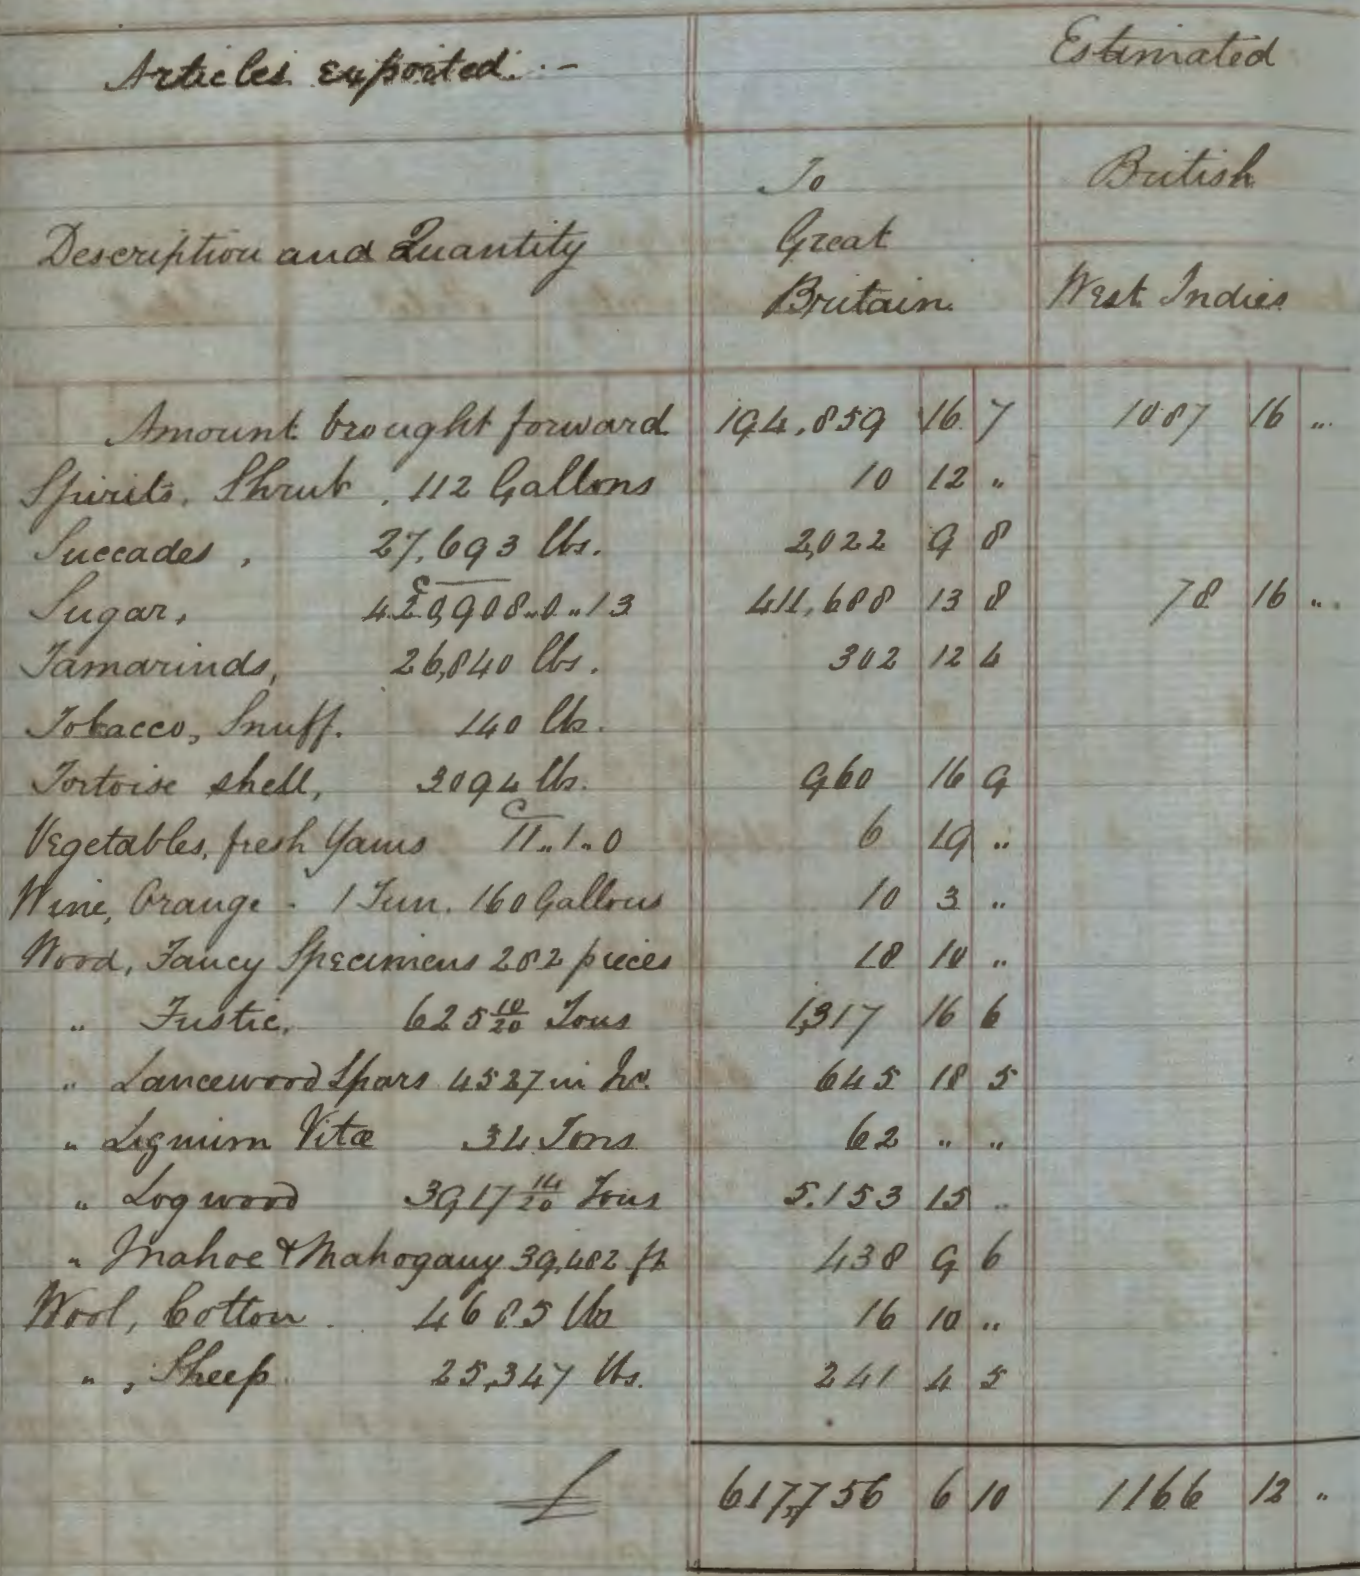 Articles exported.-
Estimated
Description and Quantity
To
Great
Britain
British
West Indies
Amount brought forward 194,859 16 7 1087 16 "
Spirits, Shrub, 112 Gallons 10 12 "
Succades, 27,693 lbs. 2,022 9 8
Sugar, c 420,908..0..13 411,688 13 8 78 16 "
Tamarinds, 26,840 lbs. 302 12 4
Tobacco, Snuff. 140 lbs.
Tortoise shell, 3094 lbs. 960 16 9
Vegetables, fresh Yams c 11..1..0 6 19 "
Wine, Orange - 1 Tun. 160 Gallons 10 3 "
Wood, Fancy Specimens 282 pieces 18 10 "
" Fustic, 625 10/20 Tons 1,317 16 6
" Lancewood Spars 4527 in No. 645 18 5
" Lignum Vitæ 34 Tons 62 " "
" Logwood 3917 14/20 Tons 5.153 15 "
" Mahoe & Mahogany 39,482 ft 438 9 6
Wool, Cotton. 4685 lbs 16 10 "
" , Sheep. 25,347 lbs. 241 4 5
£ 617,756 6 10 1166 12 "